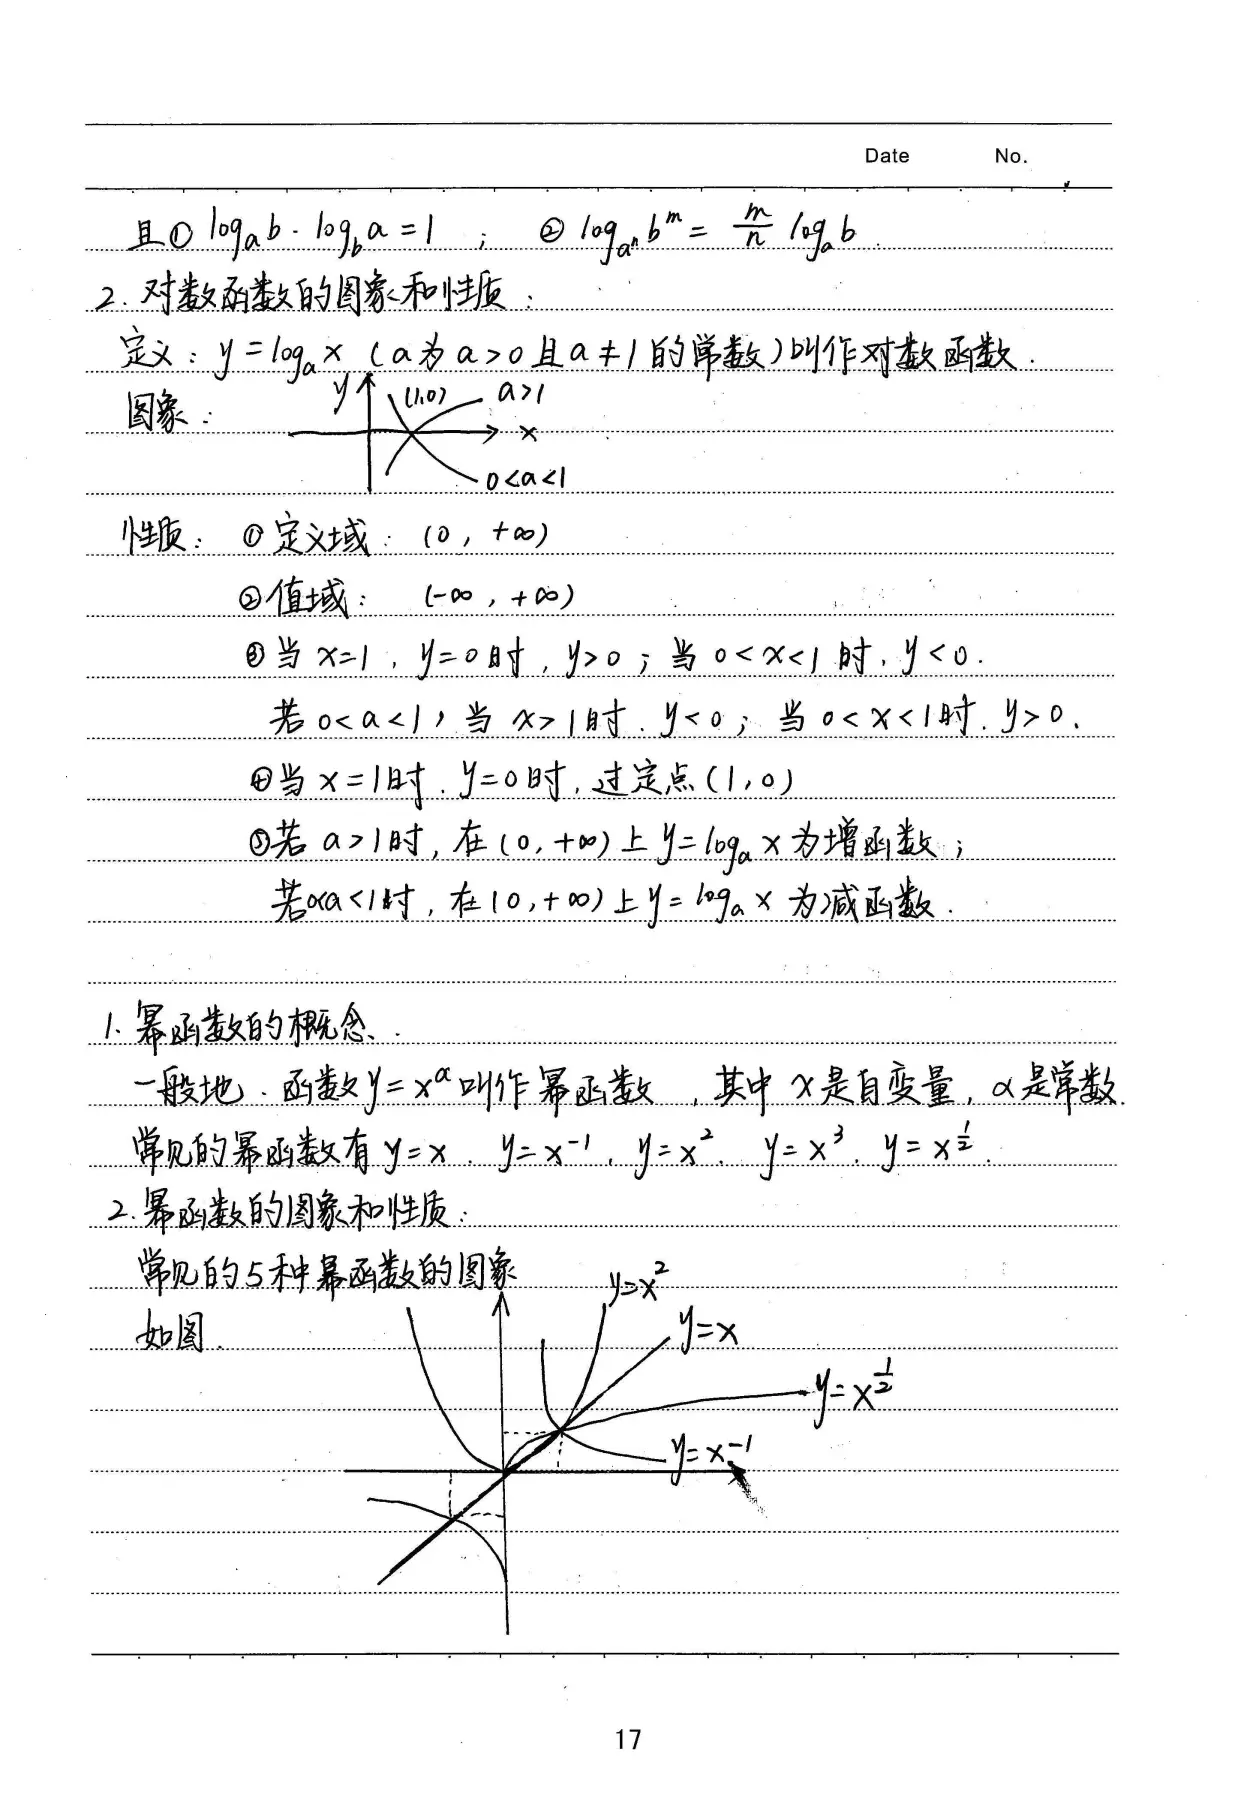 Date No.
且① logₐb · log_b a = 1 ; ② log_{aⁿ} bᵐ = m/n logₐb.
2. 对数函数的图象和性质:
定义: y = logₐx (a为a>0且a≠1的常数)叫作对数函数.
图象:
y (1,0) a>1
x
0<a<1
性质: ①定义域: (0, +∞)
②值域: (-∞, +∞)
③当x=1, y=0时, y>0; 当0<x<1时, y<0.
若0<a<1, 当x>1时, y<0; 当0<x<1时, y>0.
④当x=1时, y=0时, 过定点(1,0)
⑤若a>1时, 在(0,+∞)上y=logₐx为增函数;
若0<a<1时, 在(0,+∞)上y=logₐx为减函数.
1. 幂函数的概念.
一般地, 函数y=x^α叫作幂函数, 其中x是自变量, α是常数.
常见的幂函数有y=x, y=x⁻¹, y=x², y=x³, y=x^{1/2}.
2. 幂函数的图象和性质:
常见的5种幂函数的图象
如图.
y=x²
y=x
y=x^{1/2}
y=x⁻¹
17